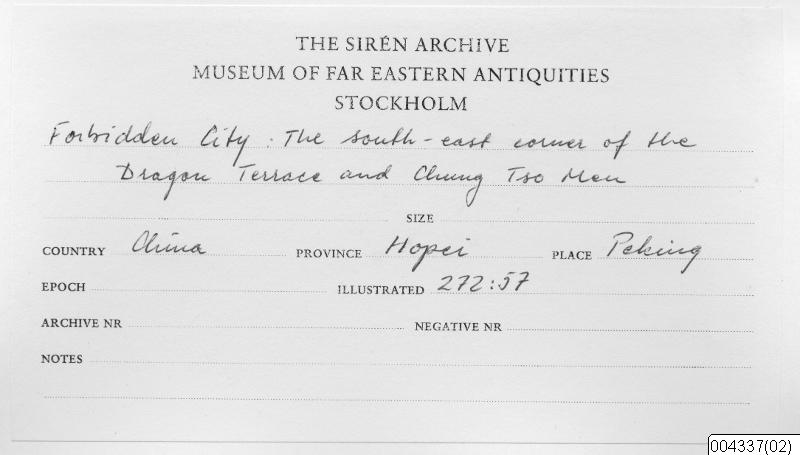 THE SIRÉN ARCHIVE
MUSEUM OF FAR EASTERN ANTIQUITIES
STOCKHOLM
Forbidden City: The south-east corner of the
Dragon Terrace and Chung Tso Men
SIZE
COUNTRY China PROVINCE Hopei PLACE Peking
EPOCH ILLUSTRATED 272:57
ARCHIVE NR NEGATIVE NR
NOTES
004337(02)